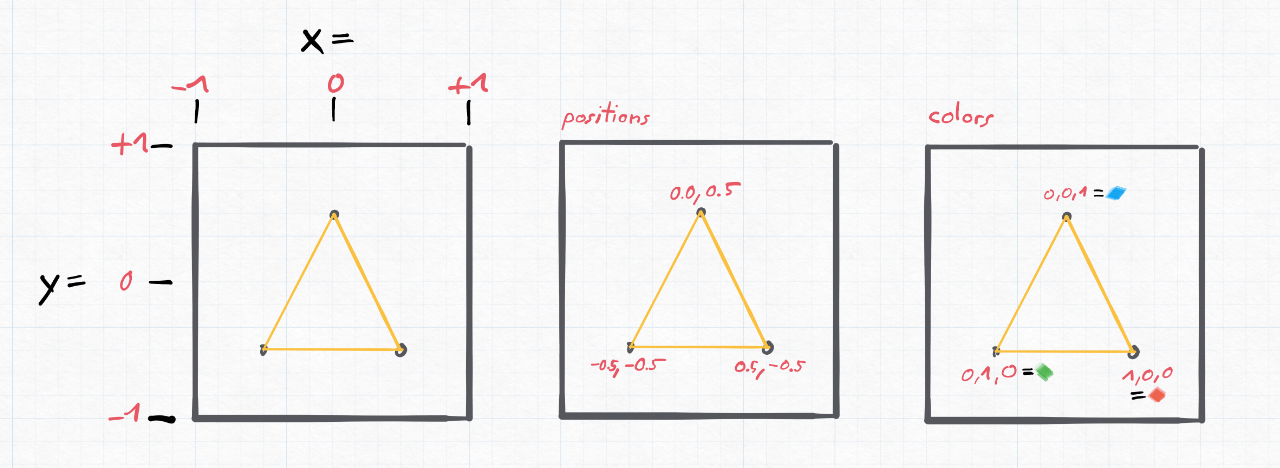 x =
-1 0 +1
+1
y = 0
-1
positions
0.0, 0.5
-0.5, -0.5
0.5, -0.5
colors
0,0,1 =
0,1,0 =
1,0,0
=